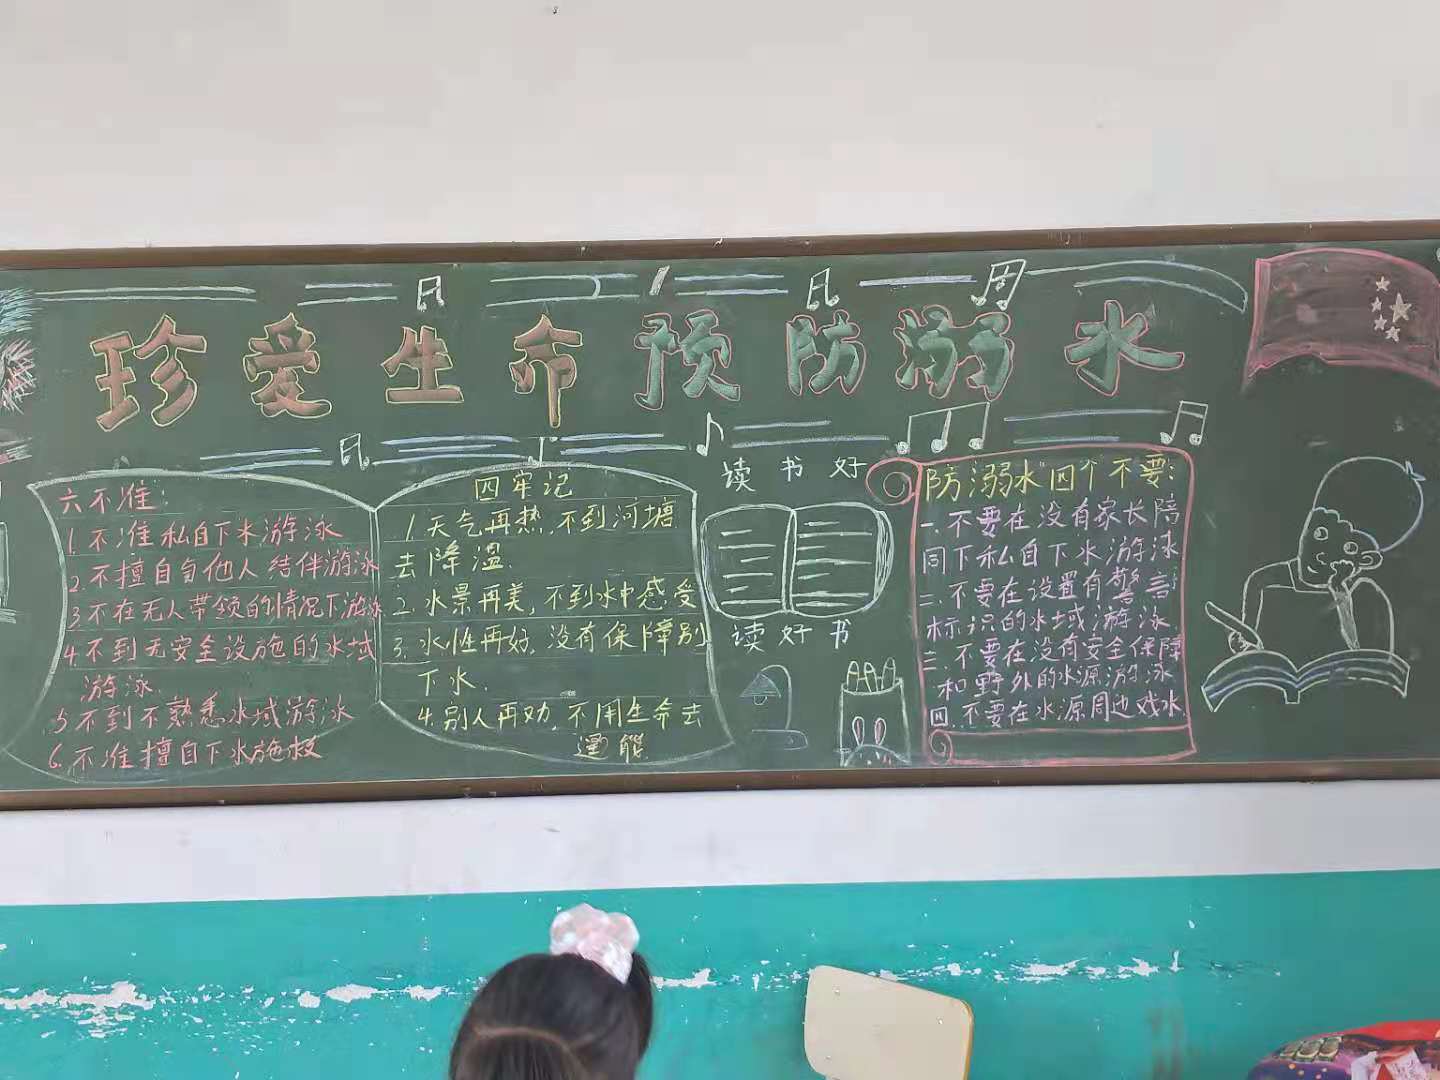 珍爱生命预防溺水
六不准:
1.不准私自下水游泳
2.不擅自与他人结伴游泳
3不在无人带领的情况下游泳
4.不到无安全设施的水域
游泳.
5不到不熟悉水域游泳
6.不准擅自下水施救
四牢记
1.天气再热,不到河塘
去降温.
2.水景再美,不到水中感受
3.水性再好,没有保障别
下水.
4.别人再劝,不用生命去
逞能
读书好
读好书
防溺水"四个不要:
一.不要在没有家长陪
同下私自下水游泳
二.不要在设置有警言
标识的水域游泳
三.不要在没有安全保障
和野外的水源游泳
四.不要在水源周边戏水